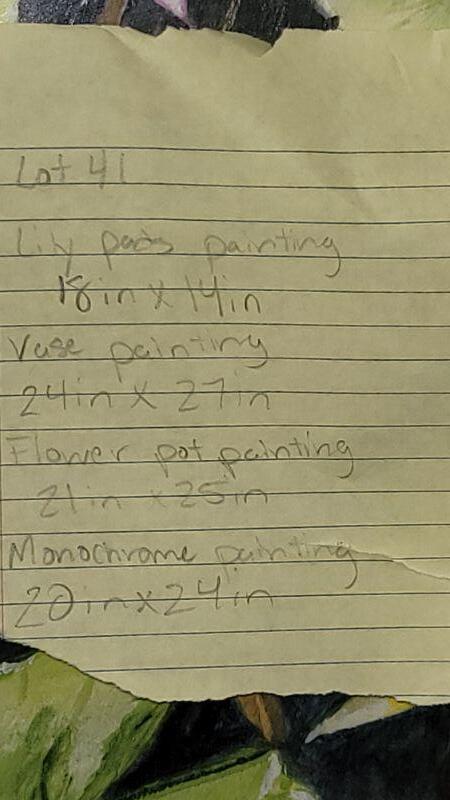 Lot 41
Lily pads painting
18in x 14in
Vase painting
24in x 27in
Flower pot painting
21in x 25in
Monochrome painting
20in x 24in